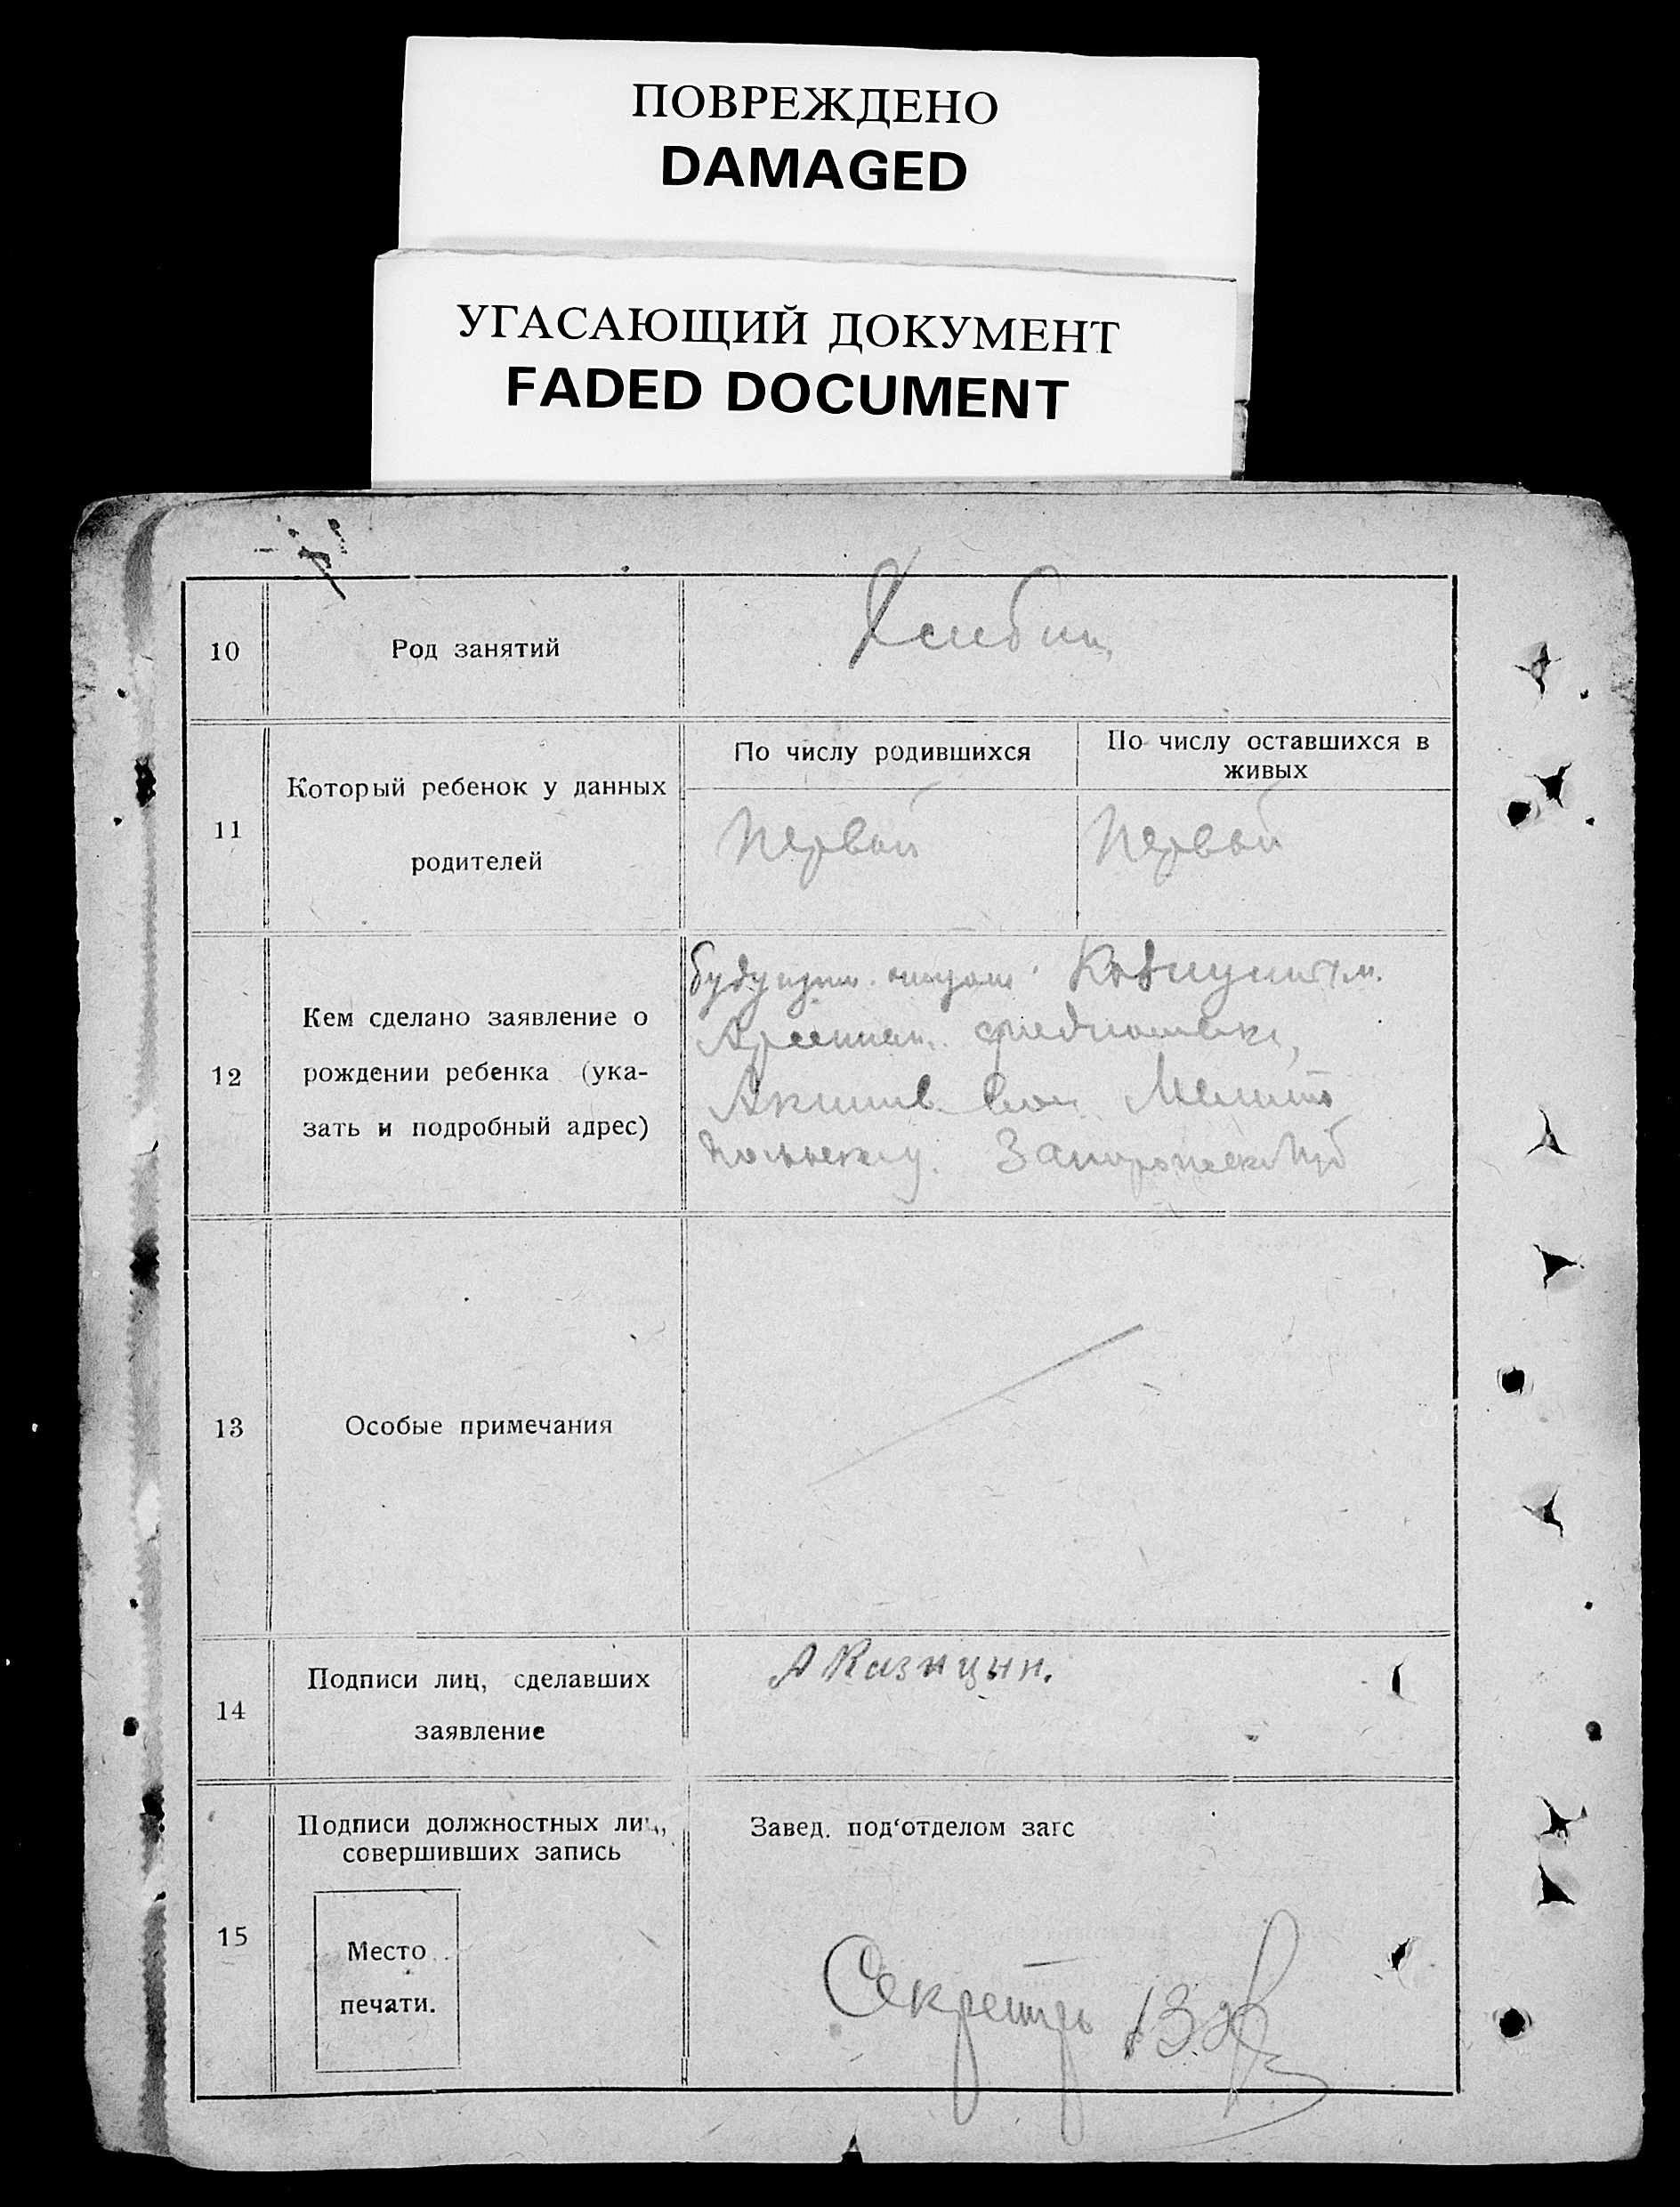 ПОВРЕЖДЕНО
DAMAGED
УГАСАЮЩИЙ ДОКУМЕНТ
FADED DOCUMENT
10
Род занятий
11
Который ребенок у данных
родителей
По числу родившихся
По числу оставшихся в
живых
Первый
Первый
12
Кем сделано заявление о
рождении ребенка (ука-
зать и подробный адрес)
Мелито
польск у. Запорожск губ
13
Особые примечания
14
Подписи лиц, сделавших
заявление
А Казнцын.
15
Подписи должностных лиц,
совершивших запись
Место
печати.
Завед. под‘отделом загс
Секретрь